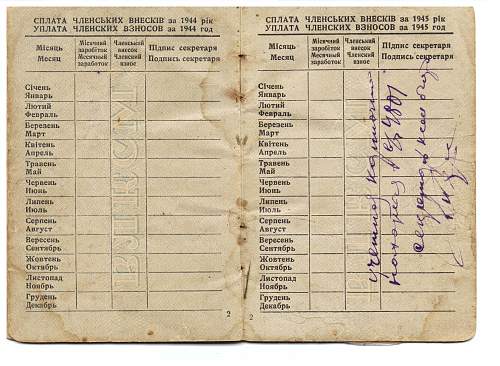 СПЛАТА ЧЛЕНСЬКИХ ВНЕСКІВ за 1944 рік
УПЛАТА ЧЛЕНСКИХ ВЗНОСОВ за 1944 год
Місяць
Месяц
Місячний
заробіток
Месячный
заработок
Членський
внесок
Членский
взнос
Підпис секретаря
Подпись секретаря
Січень
Январь
Лютий
Февраль
Березень
Март
Квітень
Апрель
Травень
Май
Червень
Июнь
Липень
Июль
Серпень
Август
Вересень
Сентябрь
Жовтень
Октябрь
Листопад
Ноябрь
Грудень
Декабрь
2
СПЛАТА ЧЛЕНСЬКИХ ВНЕСКІВ за 1945 рік
УПЛАТА ЧЛЕНСКИХ ВЗНОСОВ за 1945 год
Місяць
Месяц
Місячний
заробіток
Месячный
заработок
Членський
внесок
Членский
взнос
Підпис секретаря
Подпись секретаря
Січень
Январь
Лютий
Февраль
Березень
Март
Квітень
Апрель
Травень
Май
Червень
Июнь
Липень
Июль
Серпень
Август
Вересень
Сентябрь
Жовтень
Октябрь
Листопад
Ноябрь
Грудень
Декабрь
2